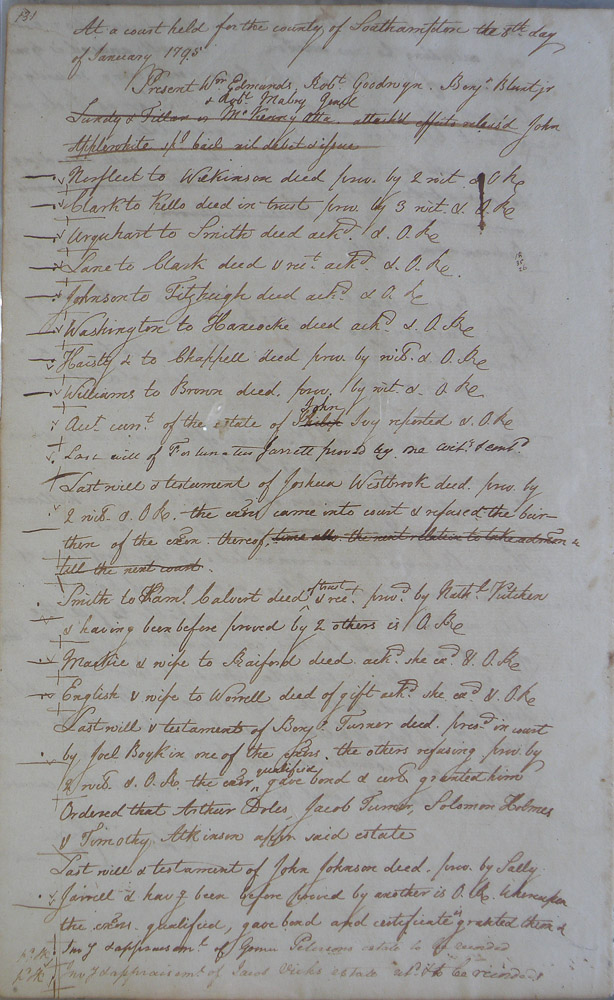 131
At a court held for the county of Southampton the 8th day
of January 1795
Present Wm Edmunds, Robt Goodwyn. Benjn Blunt jr
& Robt Mabry Gent
Lundy & Tillar vs McKenny Atta. attach'd effects releas'd John
Applewhite spl bail nil debit & issue
Norfleet to Wilkinson deed prov. by 2 wit. & O Re
Clark to Kello deed in trust prov. by 3 wit. & O Re
Urquhart to Smith deed ackd. & O. Re
Lane to Clark deed & rect ackd. & O. Re.
Johnson to Fitzhugh deed ackd & O Re
Washington to Hancocke deed ackd. & O. Re
Haisty & to Chappell deed prov. by wit. & O. Re
Williams to Brown deed. prov. by wit. & O Re
John
Act. curr.t of the estate of Philip Ivy reported & O. Re
Last will of Fortunatus Jarrett proved by one wit.
Last will & testament of Joshua Westbrook deed. prov. by
2 wit. & O. R. the exors came into court & refused the bur-
then of the exon. thereof, the next relation to take admon
till the next court.
trust
Smith to Saml. Calvert deed & rect. provd. by Nathl. Vutchen
& having been before proved by 2 others is O Re
Mackie & wife to Raiford deed ackd. she exd & O. Re
English & wife to Worrell deed of gift ackd. she exd & O. Re
Last will & testament of Benja. Turner deed. presd in court
by Joel Boykin one of the exors. the others refusing prov. by
qualified
2 wit. & O. R. the exor gave bond & cert. granted him
Ordered that Arthur Doles, Jacob Turner, Solomon Holmes
& Timothy Atkinson appr. said estate
Last will & testament of John Johnson deed. prov. by Sally
Jarrell & havg been before proved by another is O. R. whereupon
the exors. qualified, gave bond and certificate is granted them
Invy & appraisemt. of Petersons estate to be recorded
Invy & appraisemt. of Jacob Vicks estate to be recorded